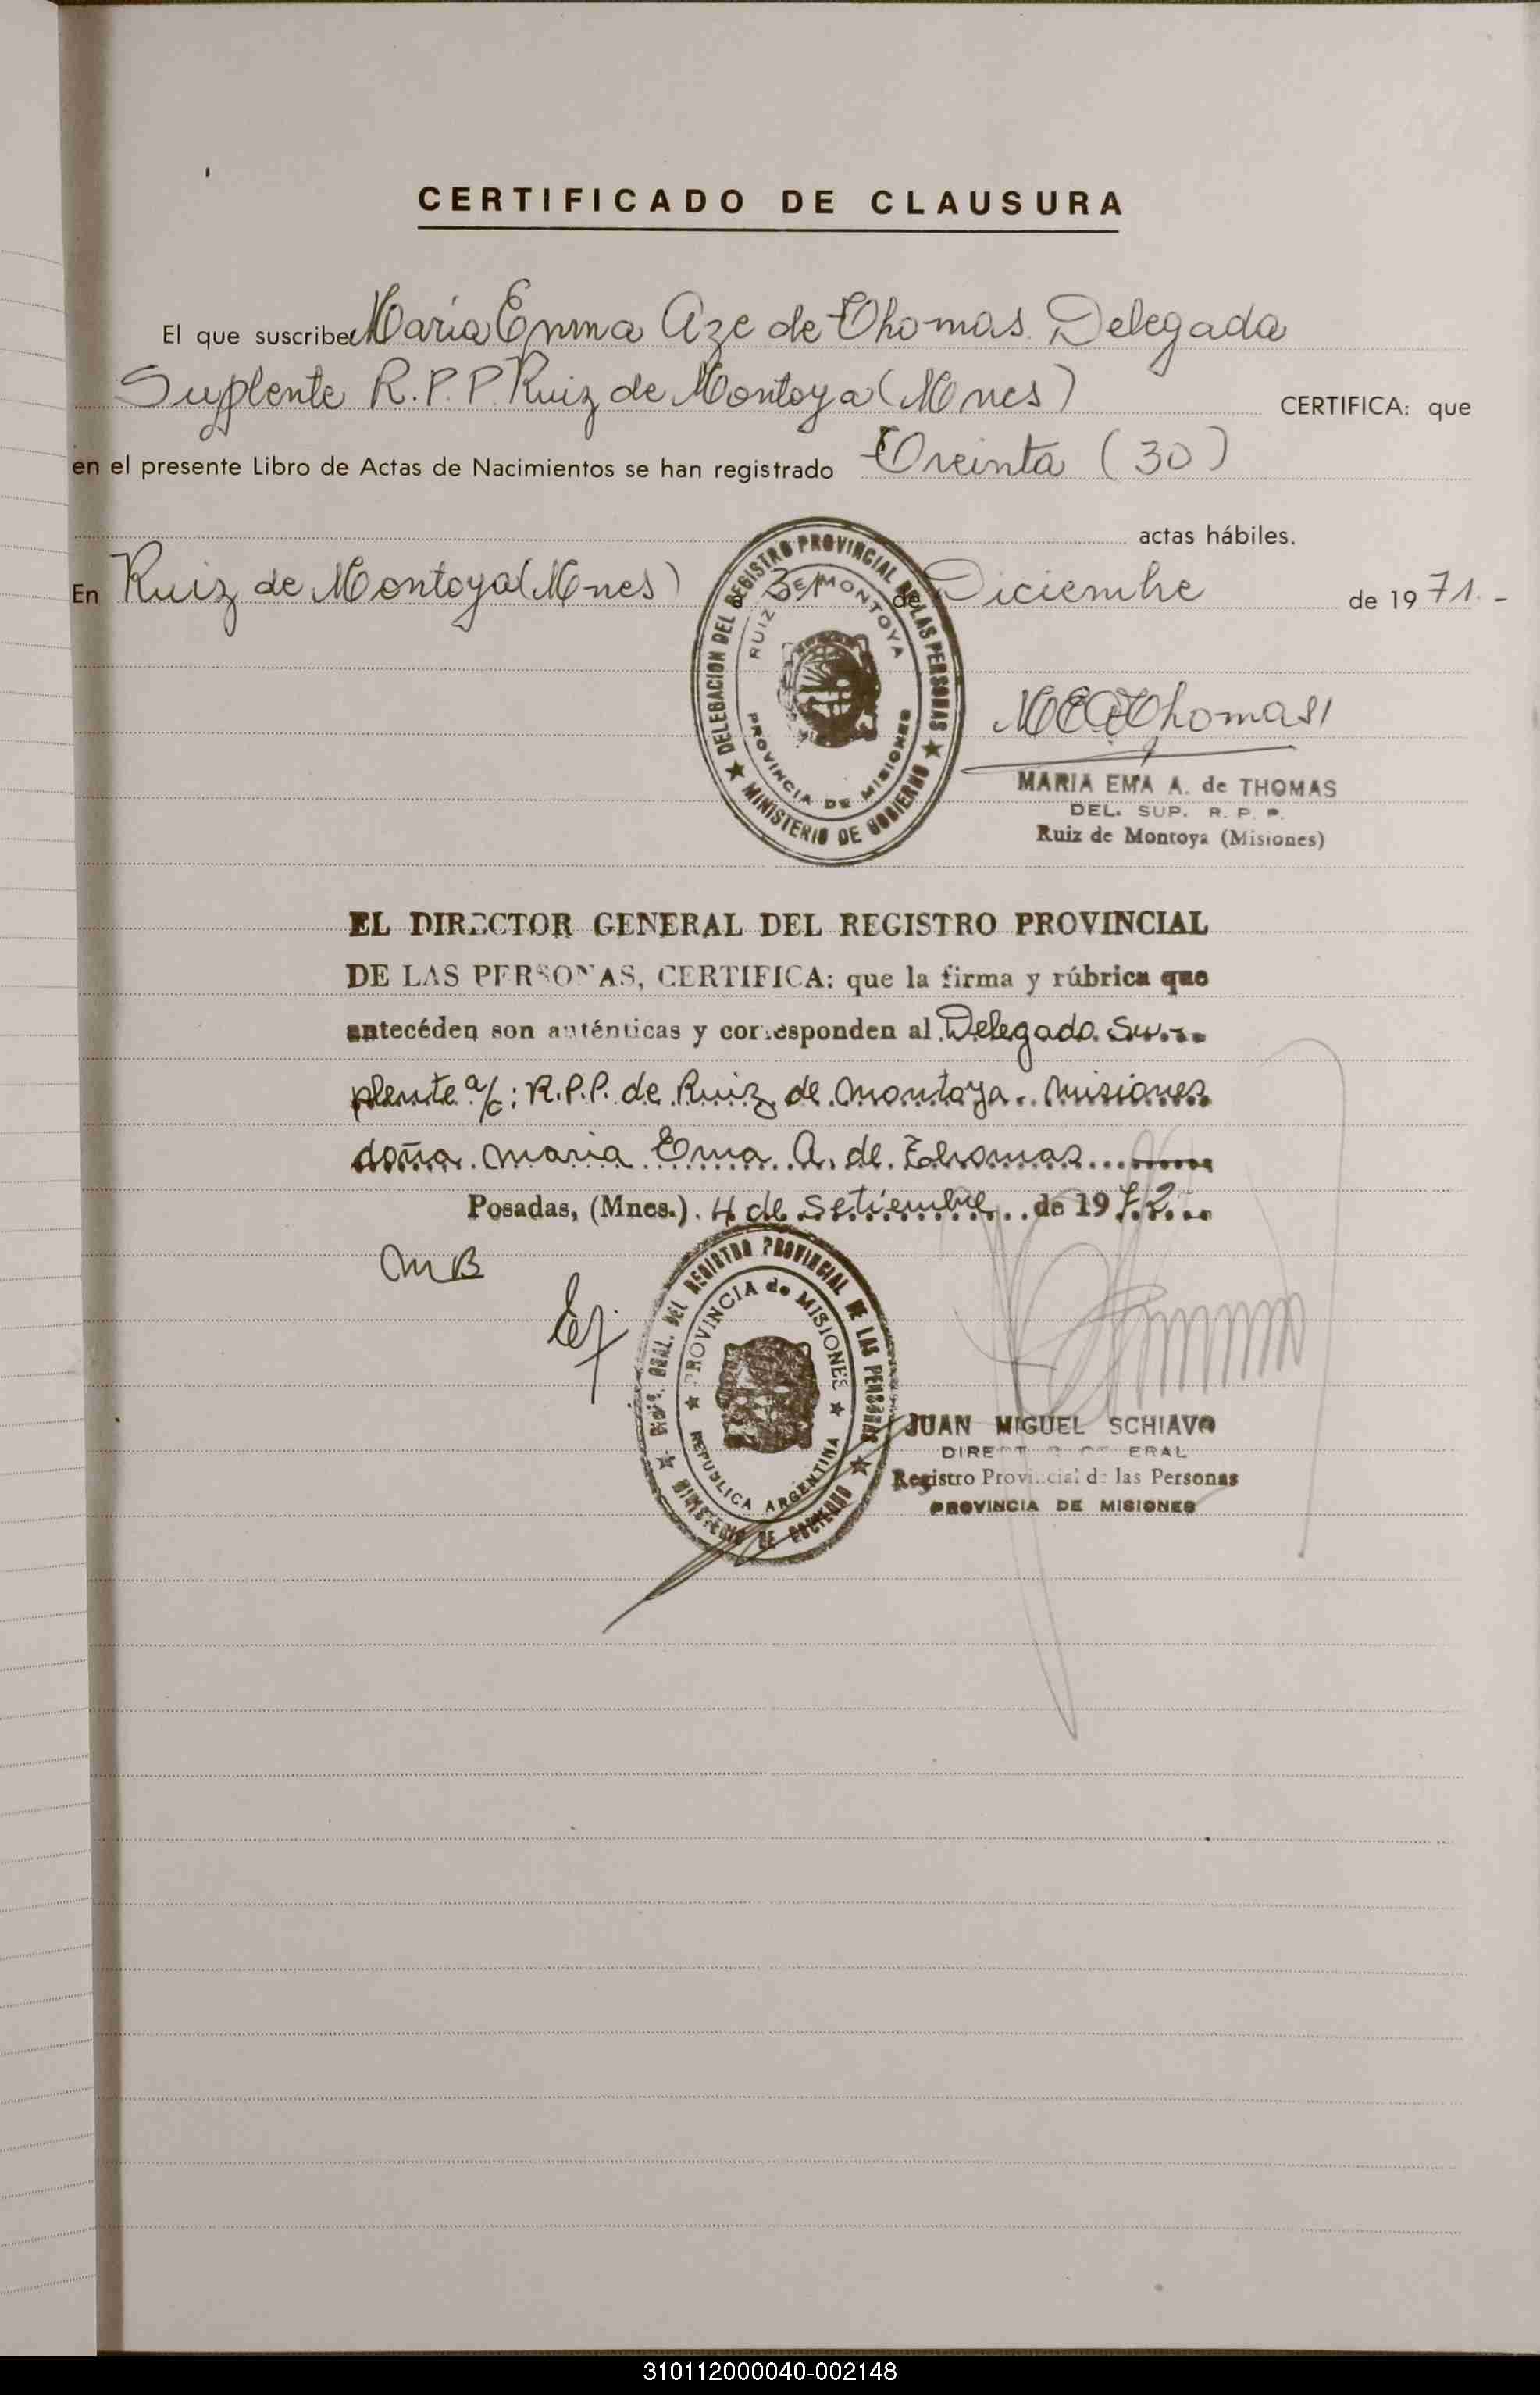 CERTIFICADO DE CLAUSURA
El que suscribe Maria Emma Aze de Thomas. Delegada
Suplente R.P.P. Ruiz de Montoya (Mnes) CERTIFICA: que
en el presente Libro de Actas de Nacimientos se han registrado Treinta (30)
actas hábiles.
En Ruiz de Montoya (Mnes) a 31 de Diciembre de 1971.-
DELEGACION DEL REGISTRO PROVINCIAL DE LAS PERSONAS
RUIZ DE MONTOYA
PROVINCIA DE MISIONES
★ MINISTERIO DE GOBIERNO ★
MEAThomas
MARIA EMA A. de THOMAS
DEL. SUP. R. P. P.
Ruiz de Montoya (Misiones)
EL DIRECTOR GENERAL DEL REGISTRO PROVINCIAL
DE LAS PERSONAS, CERTIFICA: que la firma y rúbrica que
antecéden son auténticas y corresponden al Delegado Su..
plente a/c: R.P.P. de Ruiz de Montoya. Misiones
doña Maria Ema A. de Thomas
Posadas, (Mnes.). 4 de Setiembre de 1972
MB
DIR. GRAL. DEL REGISTRO PROVINCIAL DE LAS PERSONAS
PROVINCIA de MISIONES
★ REPUBLICA ARGENTINA ★
★ MINISTERIO DE GOBIERNO ★
JUAN MIGUEL SCHIAVO
DIRECTOR GENERAL
Registro Provincial de las Personas
PROVINCIA DE MISIONES
310112000040-002148